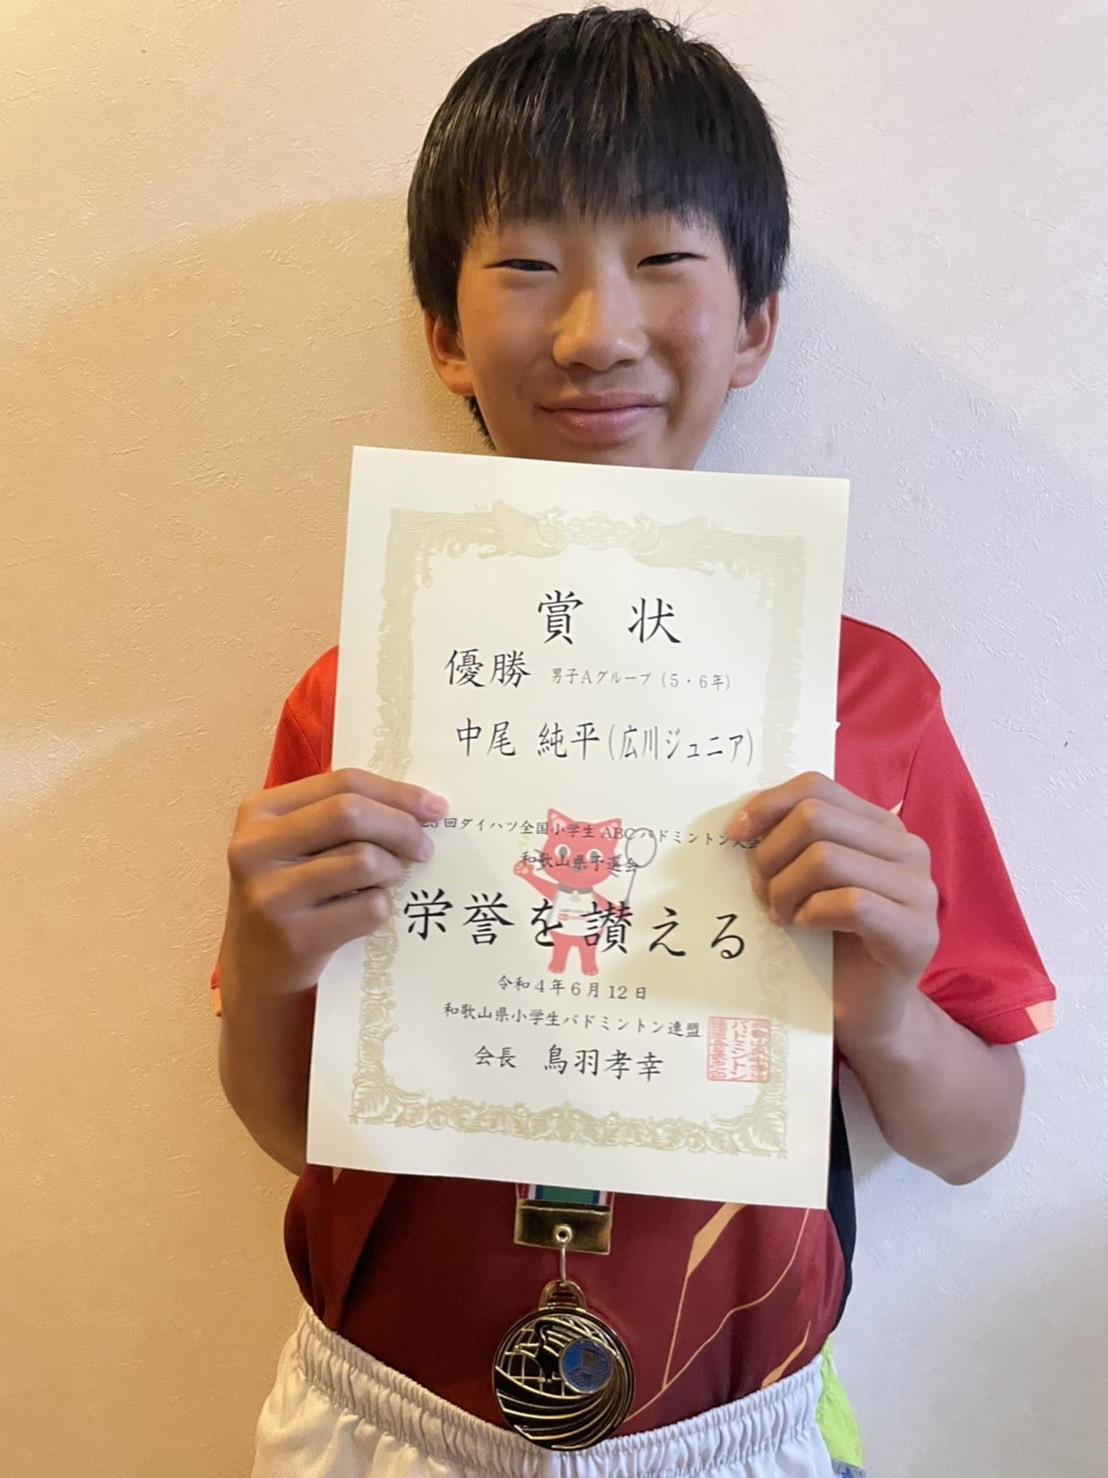 賞状
優勝 男子Aグループ（5・6年）
中尾 純平（広川ジュニア）
回ダイハツ全国小学生ABCバドミントン大会
和歌山県予選会
栄誉を讃える
令和4年6月12日
和歌山県小学生バドミントン連盟
会長 鳥羽孝幸
バドミントン